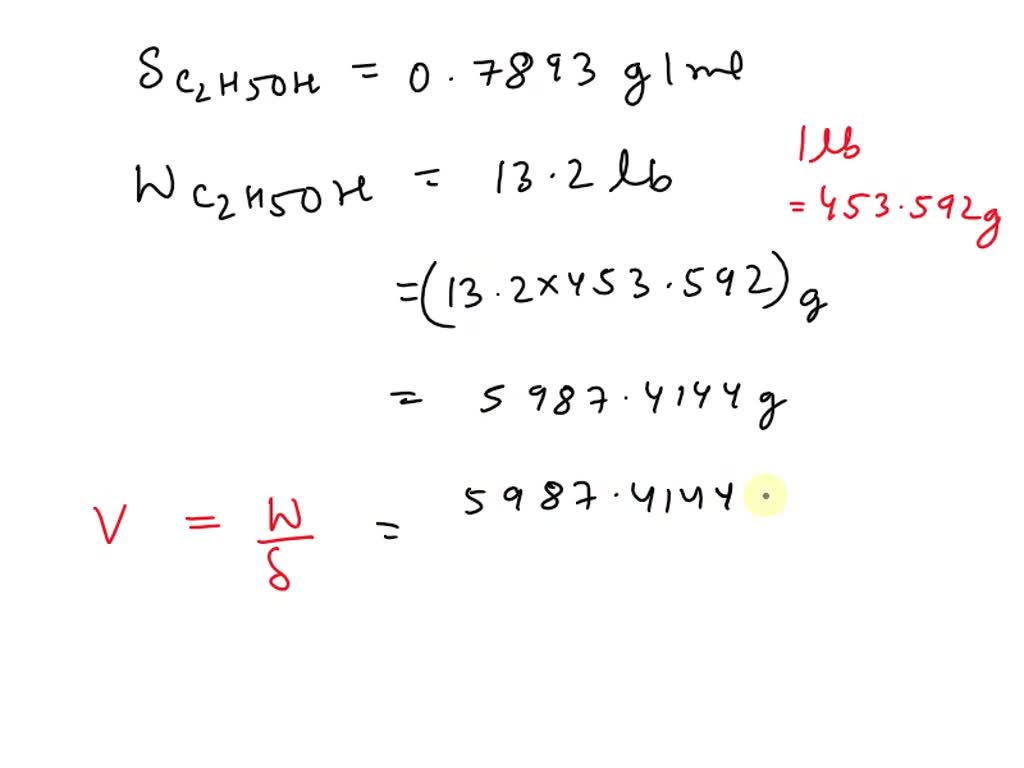 δ C2H5OH = 0.7893 g/ml
W C2H5OH = 13.2 lb
1 lb
= 453.592g
=(13.2×453.592) g
= 5987.4144 g
V = W/δ = 5987.4144